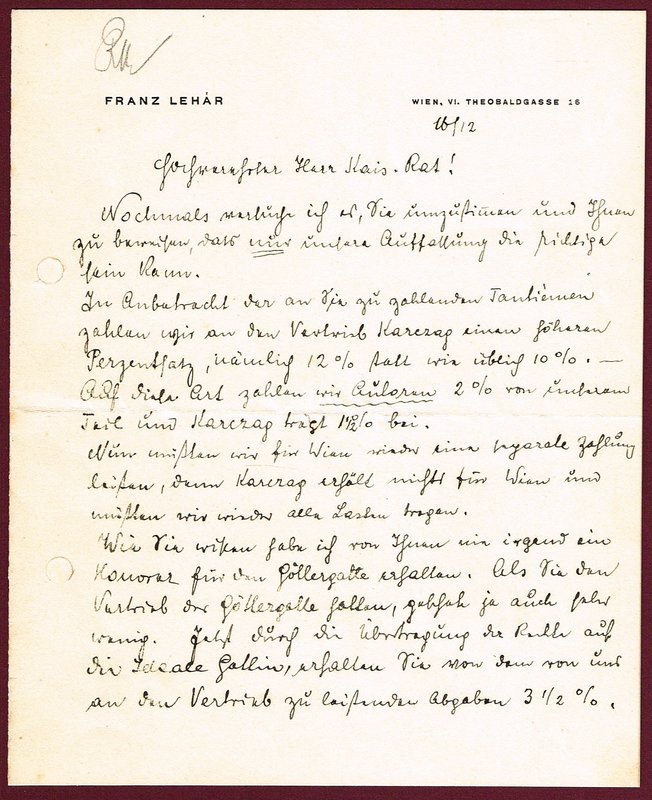 FRANZ LEHÁR
WIEN, VI. THEOBALDGASSE 16
Hochverehrter Herr Kais. Rat!
Nochmals versuche ich es, Sie umzustimmen und Ihnen
zu beweisen, dass nur unsere Auffassung die richtige
sein kann.
In Anbetracht der an Sie zu zahlenden Tantièmen
zahlen wir an den Vertrieb Karczag einen höheren
Perzentsatz, nämlich 12 % statt wie üblich 10 %. —
Auf diese Art zahlen wir Autoren 2 % von unserem
Teil und Karczag trägt 1 1/2 % bei.
Nun müssten wir für Wien wieder eine separate Zahlung
leisten, denn Karczag erhält nichts für Wien und
müssten wir wieder alle Lasten tragen.
Wie Sie wissen habe ich von Ihnen nie irgend ein
Honorar für den Göttergatte erhalten. Als Sie den
Vertrieb des Göttergatte hatten, geschah ja auch sehr
wenig. Jetzt durch die Übertragung der Rechte auf
die Ideale Gattin, erhalten Sie von dem von uns
an den Vertrieb zu leistenden Abgaben 3 1/2 %.